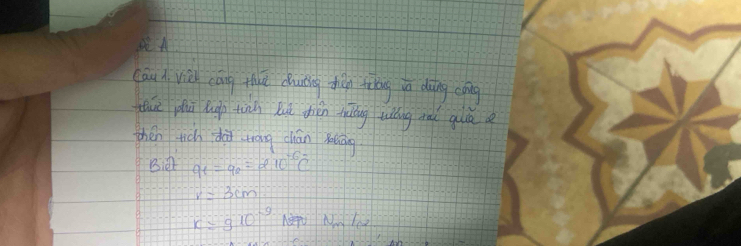 Đề A
Câu 1. Viết công thức chương điện trường và dùng công
thức phù hợp tính lực điện trường tương tác giữa 2
điện tích đặt trong chân không
Biết q1 = q2 = 2 10⁻⁶ C
r = 3cm
k = 9 10⁻⁹ Nm/c2